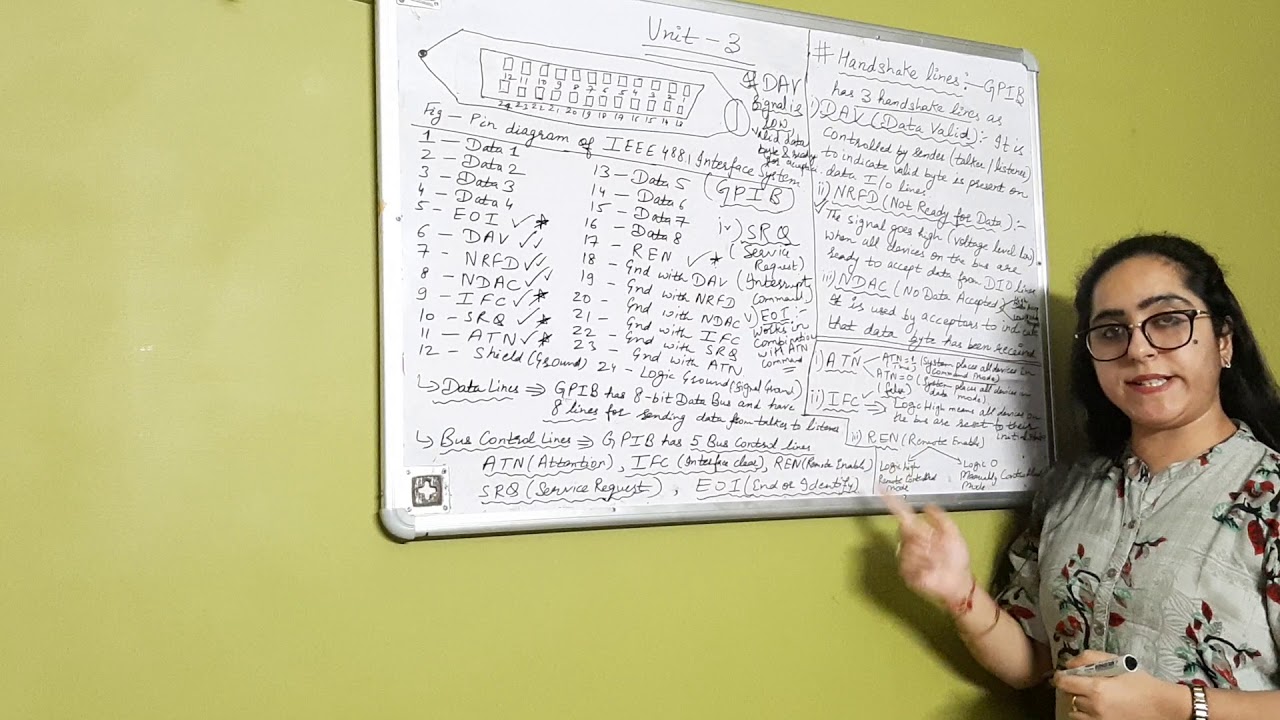 Unit - 3
12 11 10 9 8 7 6 5 4 3 2 1
24 23 22 21 20 19 18 16 15 14 13
Fig - Pin diagram of IEEE 488.1 Interface System
(GPIB)
1 - Data 1
2 - Data 2
3 - Data 3
4 - Data 4
5 - EOI ✓ *
6 - DAV ✓✓
7 - NRFD ✓✓
8 - NDAC ✓✓
9 - IFC ✓ *
10 - SRQ ✓ *
11 - ATN ✓ *
12 - Shield (Ground)
13 - Data 5
14 - Data 6
15 - Data 7
16 - Data 8
17 - REN ✓ *
18 - Gnd with DAV
19 - Gnd with NRFD
20 - Gnd with NDAC
21 - Gnd with IFC
22 - Gnd with SRQ
23 - Gnd with ATN
24 - Logic Ground (Signal Ground)
* DAV
Signal is
low
Valid data
byte is ready
for
iv) SRQ
(Service
Request)
(Interrupt
Command)
v) EOI :-
Works in
Combination
with ATN
Command
↳ Data Lines ⇒ GPIB has 8-bit Data Bus and have
8 lines for sending data from talker to listener
↳ Bus Control Lines ⇒ GPIB has 5 Bus Control lines
ATN (Attention), IFC (Interface clear), REN (Remote Enable)
SRQ (Service Request), EOI (End or Identify)
# Handshake lines :- GPIB
has 3 handshake lines as
i) DAV (Data Valid) :- It is
controlled by sender (talker / listener)
to indicate valid byte is present on
data I/O lines.
ii) NRFD (Not Ready for Data) :-
✓ The signal goes high (voltage level low)
when all devices on the bus are
ready to accept data from DIO lines
iii) NDAC (No Data Accepted)
It is used by acceptors to indicate
that data byte has been received
i) ATN
ATN=1 (System places all devices in
True command mode)
ATN=0 (System places all devices in
(false) data mode)
ii) IFC ⇒ Logic High means all devices on
the bus are reset to their
initial
iii) REN (Remote Enable)
Logic high
Remote Controlled
mode
Logic 0
Manually Controlled
Mode